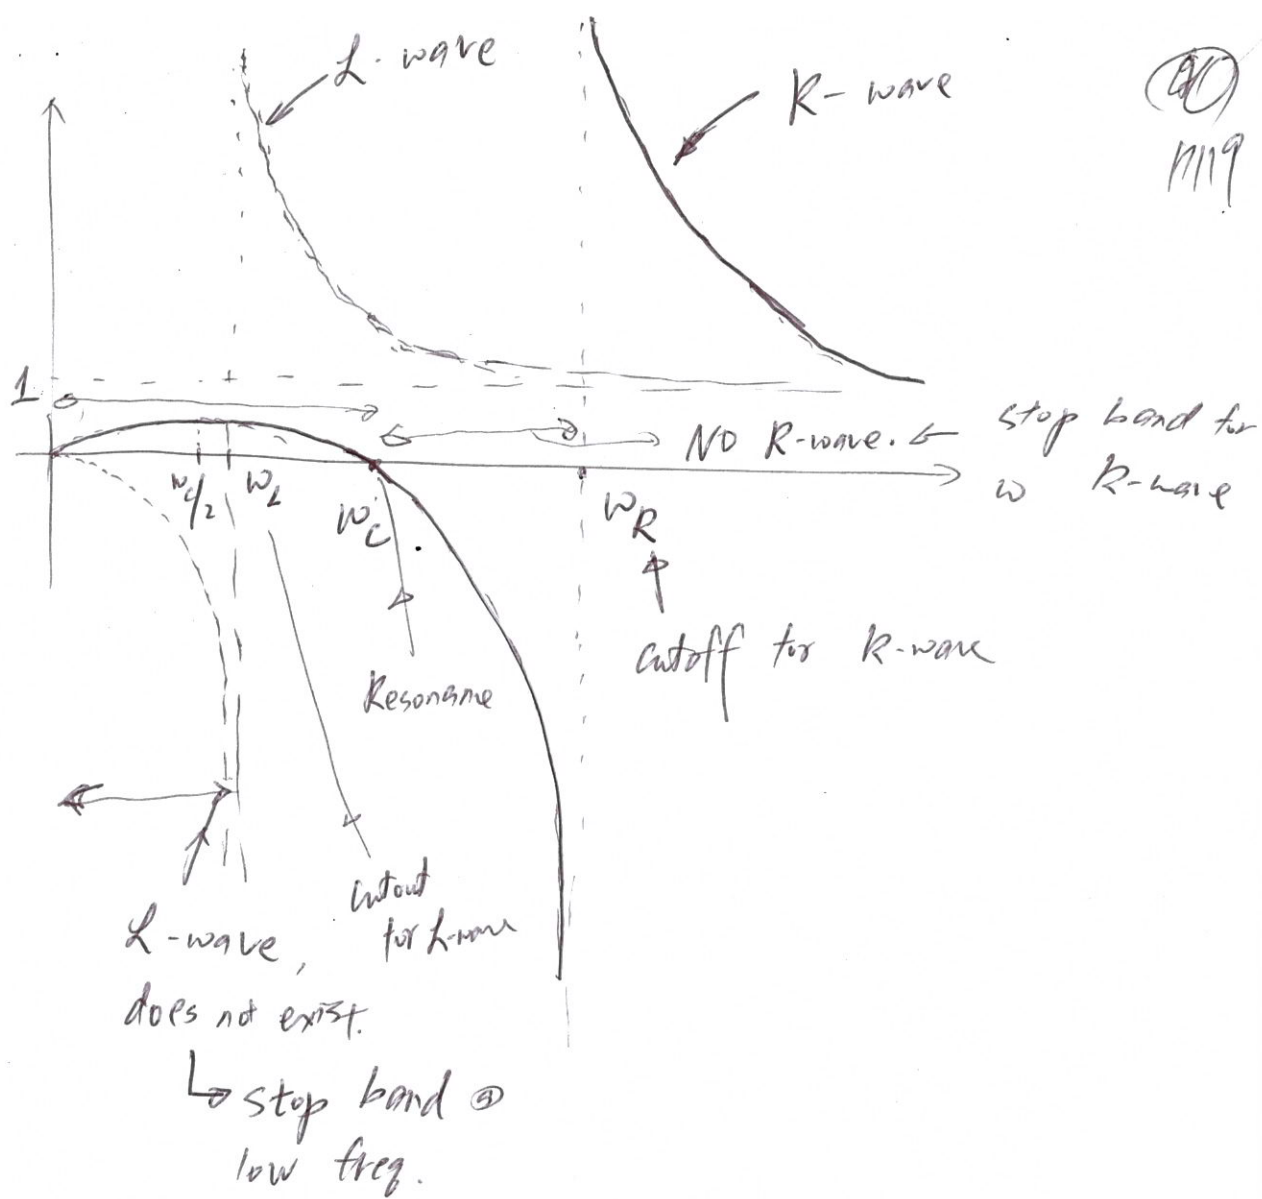 L-wave
R-wave
1
NO R-wave. ← stop band for
R-wave
ω
ωc/2
ωL
ωc
ωR
cutoff for R-wave
Resoname
cutout
for L-wave
L-wave,
does not exist.
↳ stop band @
low freq.